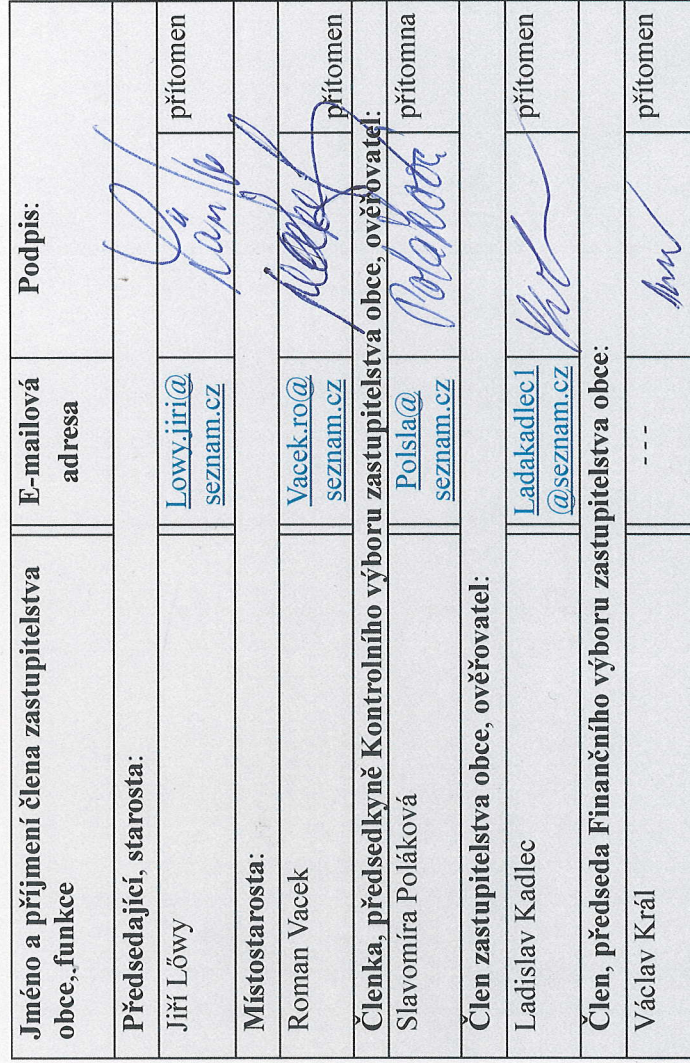 Jméno a příjmení člena zastupitelstva
obce, funkce
E-mailová
adresa
Podpis:
Předsedající, starosta:
Jiří Lőwy
Lowy.jiri@
seznam.cz
přítomen
Místostarosta:
Roman Vacek
Vacek.ro@
seznam.cz
přítomen
Členka, předsedkyně Kontrolního výboru zastupitelstva obce, ověřovatel:
Slavomíra Poláková
Polsla@
seznam.cz
Poláková
přítomna
Člen zastupitelstva obce, ověřovatel:
Ladislav Kadlec
Ladakadlec1
@seznam.cz
přítomen
Člen, předseda Finančního výboru zastupitelstva obce:
Václav Král
- - -
přítomen